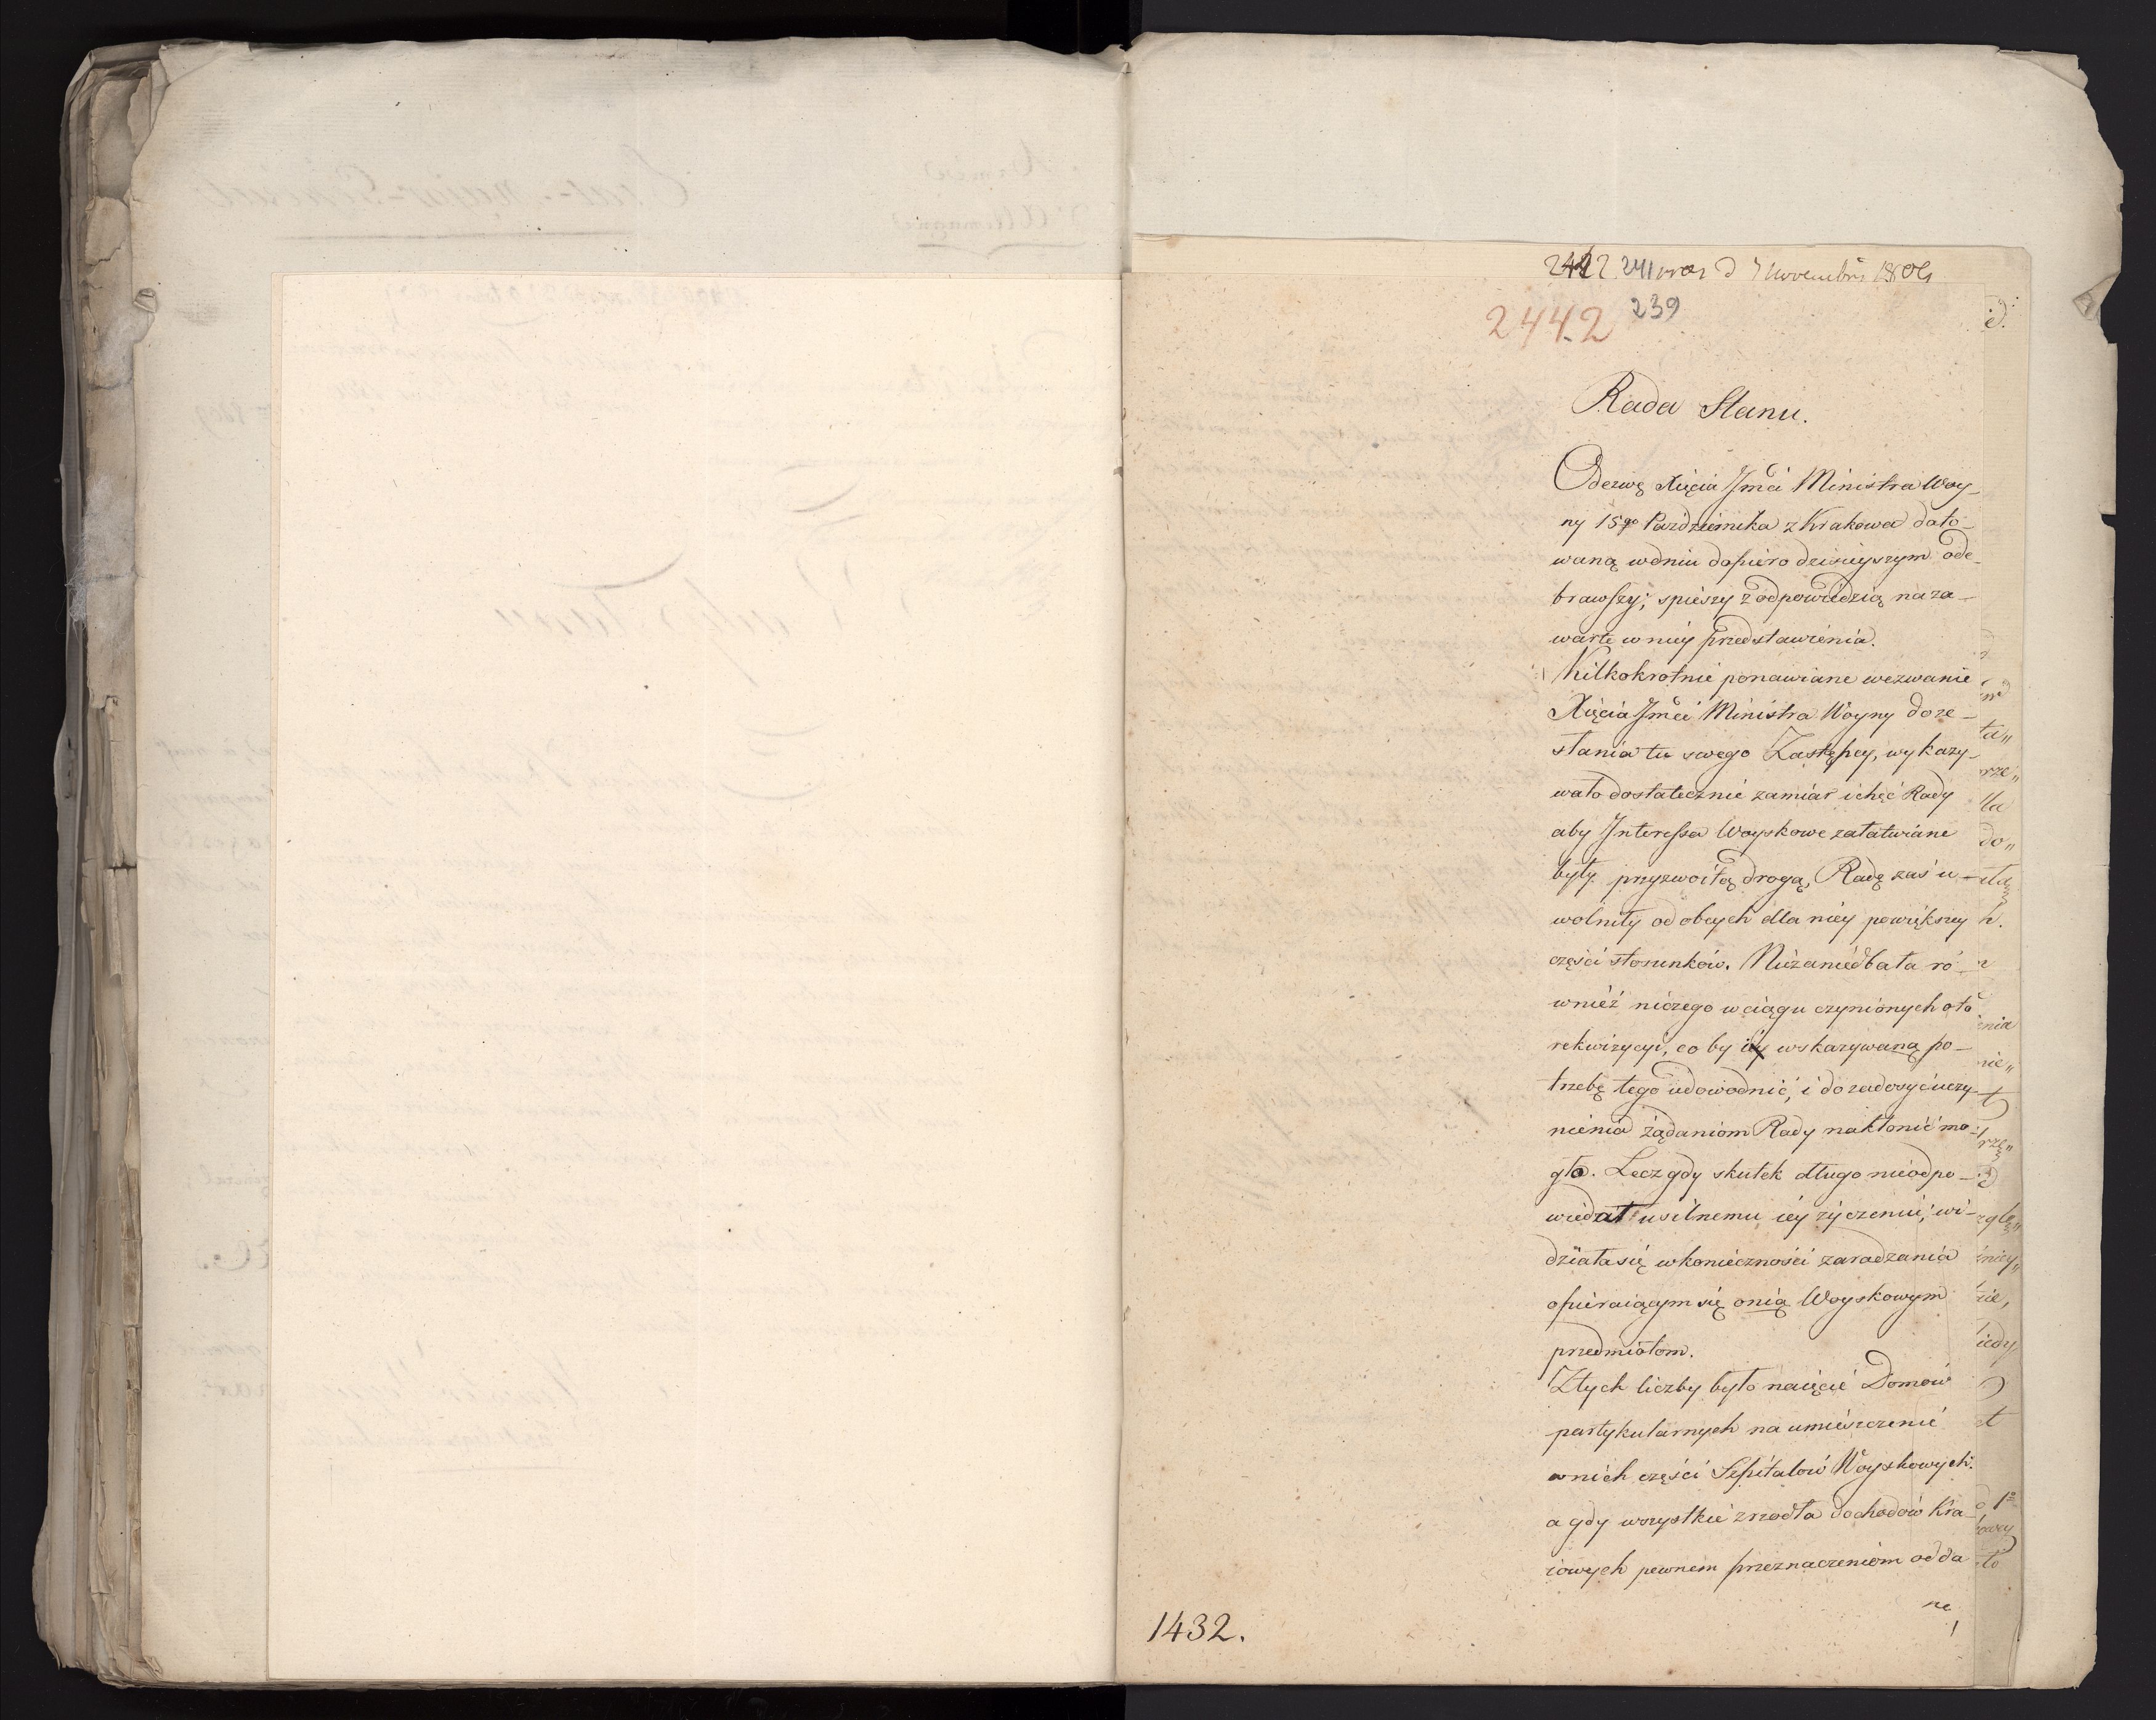 2442 241 prez d 7 Novembris 1809
239
2442
Rada Stanu.
Odezwę Xięcia Jmci Ministra Woy-
ny 15go Pazdziernika z Krakowa dato-
waną wdniu dopiero dzisieyszym ode-
brawszy; spieszy z odpowiedzią na za-
warte w niey przedstawienia.
Kilkokrotnie ponawiane wezwanie
Xięcia Jmci Ministra Woyny do ze-
słania tu swego Zastępcy, wykazy-
wało dostatecznie zamiar i chęć Rady
aby Interessa Woyskowe załatwiane
były przyzwoitą drogą, Radę zaś u-
wolniły od obcych dla niey powiększey
części stosunków. Niezaniedbała ró-
wnież niczego w ciągu czynionych oto
rekwizycyi, co by wskazywaną po-
trzebę tego udowodnić, i do zadosyć uczy-
nienia żądaniom Rady nakłonić mo-
gło. Lecz gdy skutek długo nieodpo-
wiedział usilnemu iey życzeniu, wi-
działa się w konieczności zaradzania
opieraiącym się o nią Woyskowym
przedmiotom.
Z tych liczby było naięcie Domów
partykularnych na umieszczenie
w nich części Szpitalów Woyskowych:
a gdy wszystkie zrzodła dochodów Kra-
iowych pewnem przeznaczeniom odda
ne,
1432.